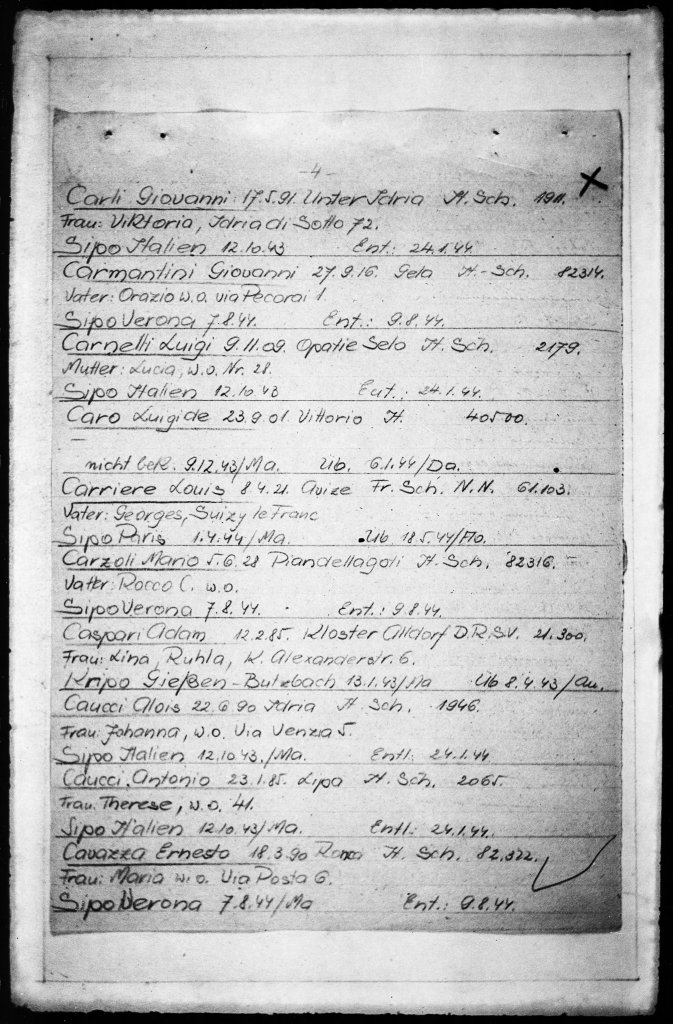 - 4 -
Carli Giovanni 17.5.91. Unter Idria It. Sch. 1911.
Frau: Viktoria, Idria di Sotto 72.
Sipo Italien 12.10.43 Ent.: 24.1.44.
Carmantini Giovanni 27.9.16. Gela It.-Sch. 82314.
Vater: Orazio w.o. via Pecorai 1.
Sipo Verona 7.8.44. Ent.: 9.8.44.
Carnelli Luigi 9.11.09. Opatie Selo It. Sch. 2179.
Mutter: Lucia, w.o. Nr. 28.
Sipo Italien 12.10.43 Ent.: 24.1.44.
Caro Luigi de 23.9.01. Vittorio It. 40500.
nicht bek. 9.12.43/Ma. Üb. 6.1.44/Da.
Carriere Louis 8.4.21. Avize Fr. Sch. N.N. 61.103.
Vater: Georges, Suizy le Franc
Sipo Paris 1.4.44/Ma. Üb. 18.5.44/Flo.
Carzoli Mario 5.6.28 Piandellagoti It. Sch. 82316.
Vater: Rocco C. w.o.
Sipo Verona 7.8.44. Ent.: 9.8.44.
Caspari Adam 12.2.85. Kloster Alldorf D.R.S.V. 21.300.
Frau: Lina, Ruhla, K. Alexanderstr. 6.
Kripo Gießen-Butzbach 13.1.43/Ma Üb 8.4.43/Au.
Caucci Alois 22.6.90 Idria It Sch. 1946.
Frau: Johanna, w.o. Via Venzia 5.
Sipo Italien 12.10.43./Ma. Entl.: 24.1.44.
Caucci, Antonio 23.1.85. Lipa It. Sch. 2065.
Frau: Therese, w.o. 41.
Sipo Italien 12.10.43/Ma. Entl.: 24.1.44.
Cavazza Ernesto 18.3.90 It. Sch. 82.322.
Frau: Maria w.o. Via Posta 6.
Sipo Verona 7.8.44/Ma Ent.: 9.8.44.